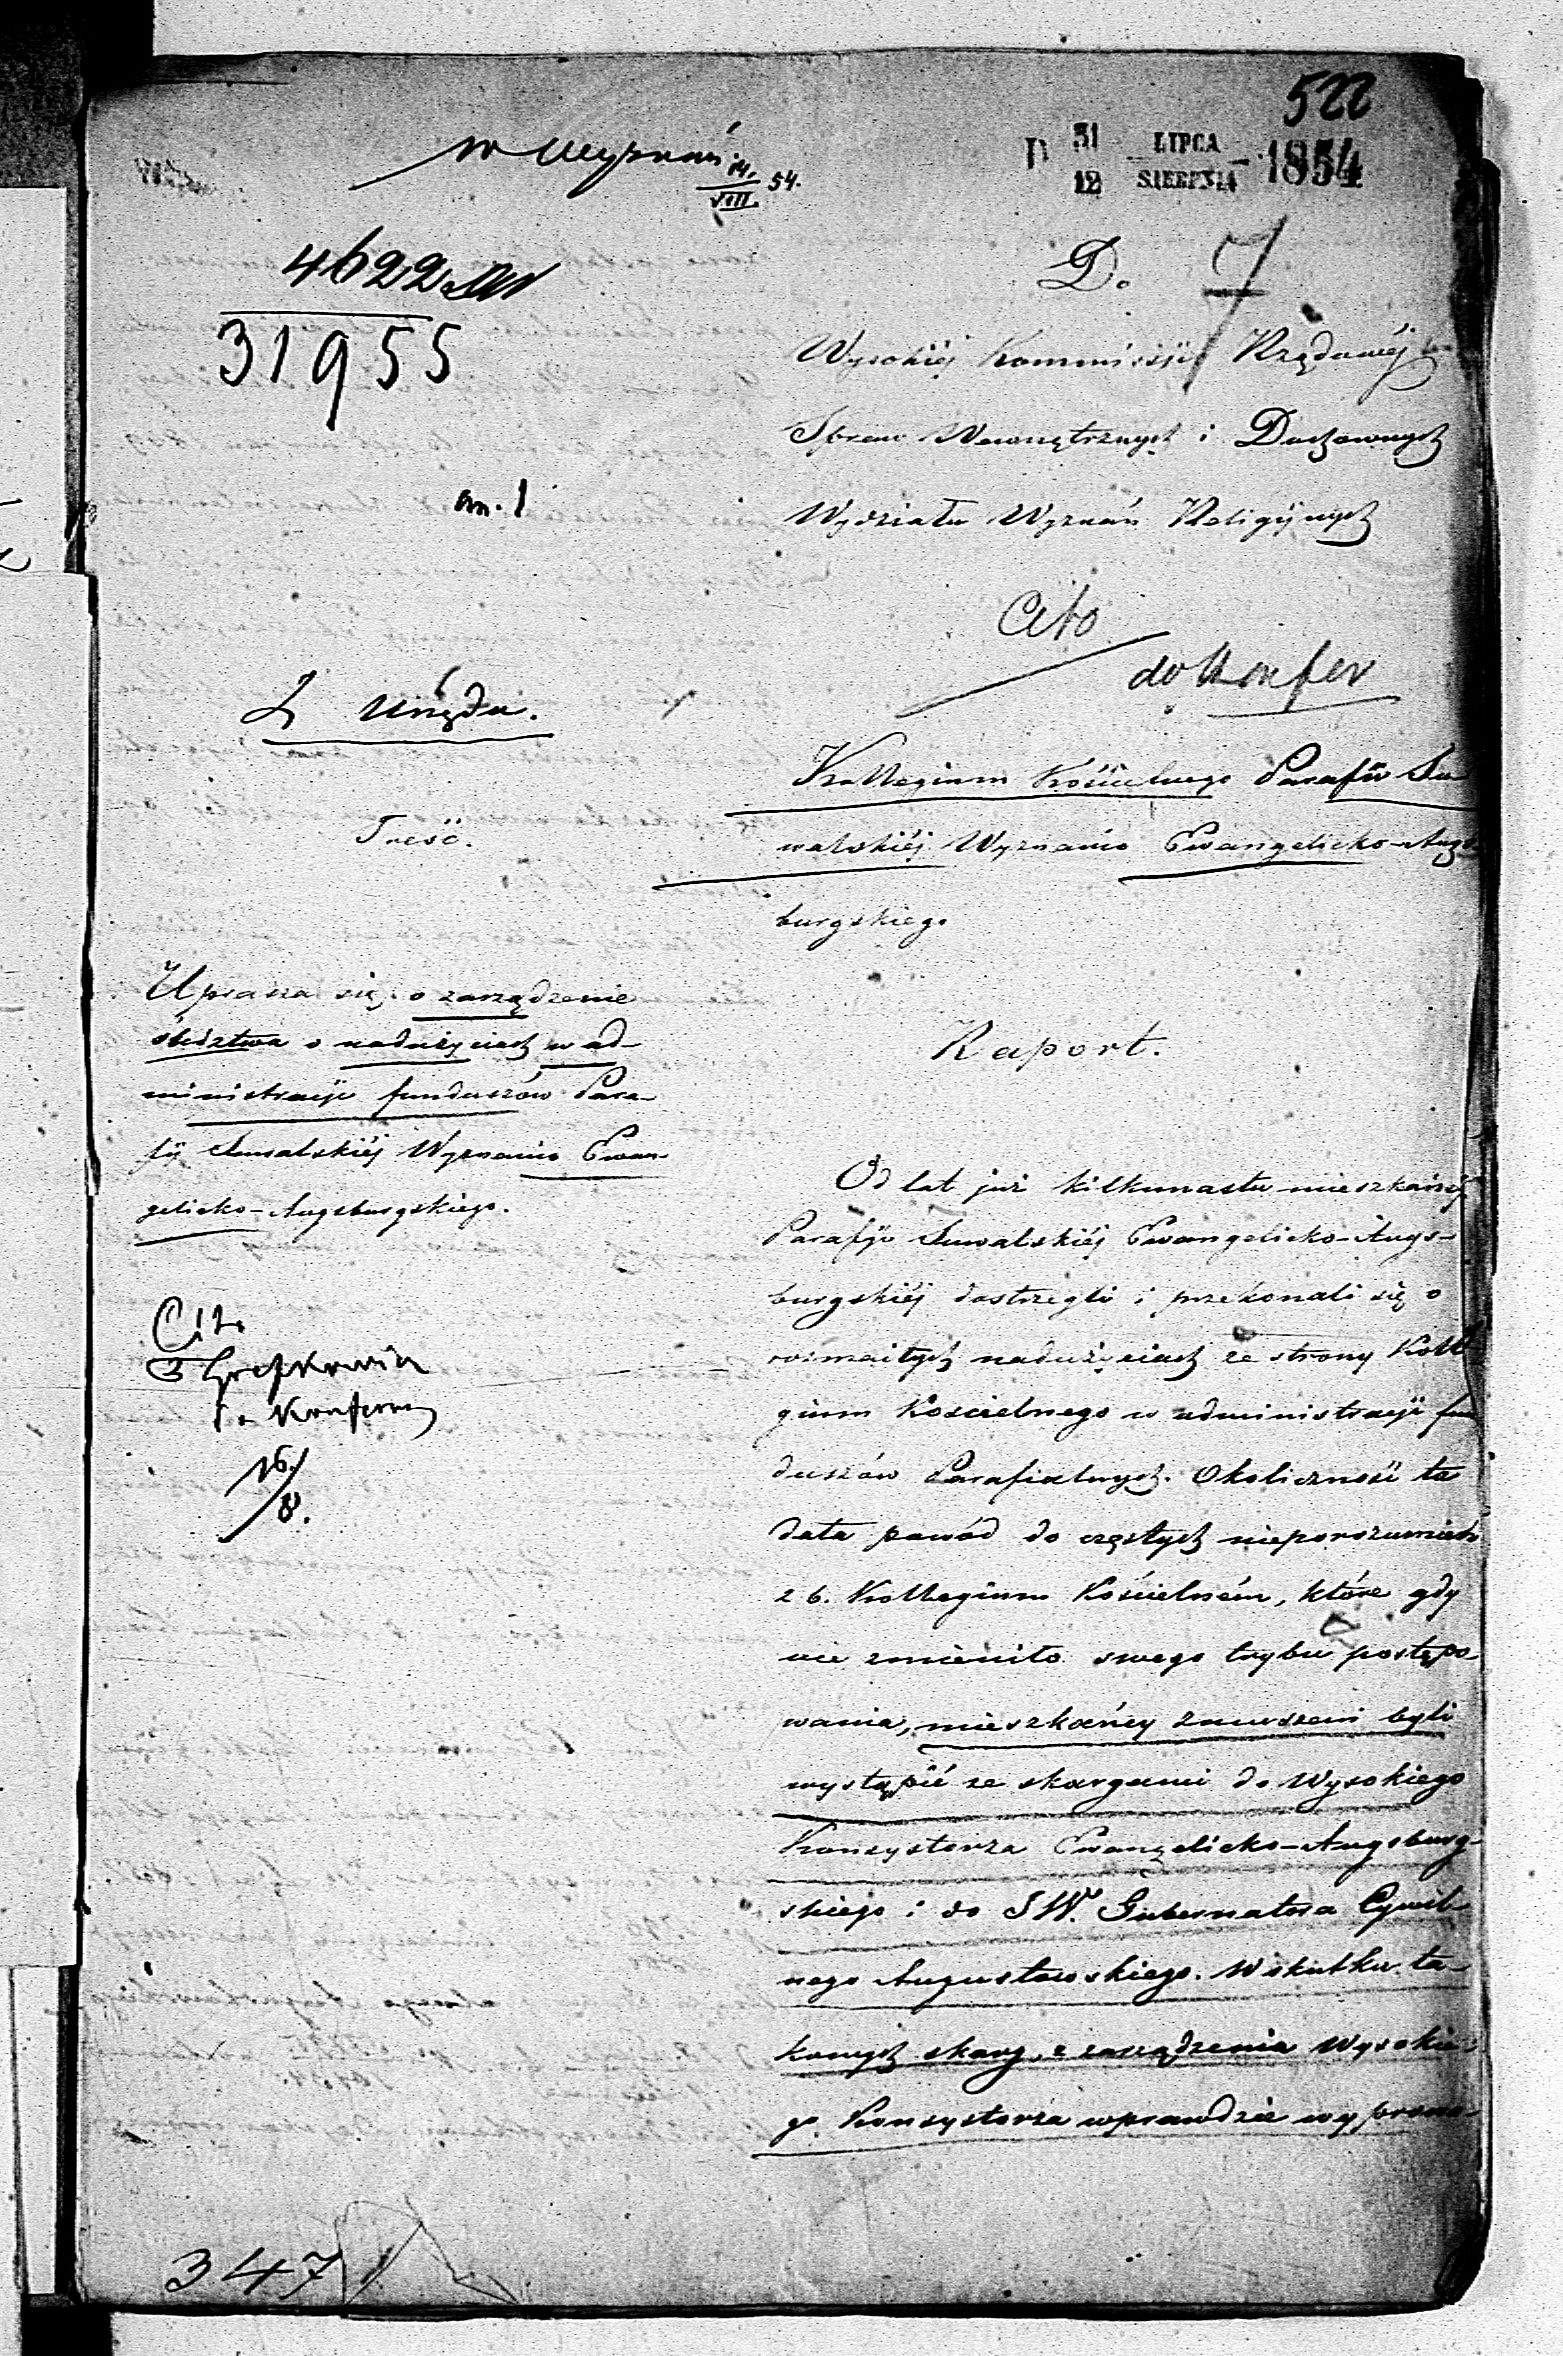 522
w Wyznań 14/VIII 54.
D 31/12 LIPCA/SIERPNIA 1854
4622
31955
Do
7
Wysokiéj Kommissyi Rządowéj
Spraw Wewnętrznych i Duchownych
Wydziału Wyznań Religijnych
an. 1
Cito
do Konfer
Z Urzędu.
Kollegium Kościelnego Parafii Su-
walskiéj Wyznania Ewangelicko-Augs-
burgskiego
Treść.
Uprasza się o zarządzenie
śledztwa o nadużyciach w ad-
ministracyi funduszów Para-
fii Suwalskiéj Wyznania Ewan-
gelicko-Augsburgskiego.
Cito
Konferen
16/8.
Raport.
Od lat już kilkunastu mieszkańcy
Parafji Suwalskiéj Ewangelicko-Augs-
burgskiéj dostrzegli i przekonali się o
rozmaitych nadużyciach ze strony Kolle
gium Kościelnego w administracyi fun
duszów Parafialnych. Okoliczność ta
dała powód do częstych nieporozumień
z b. Kollegium Kościelném, które gdy
nie zmieniło swego trybu postępo-
wania, mieszkańcy zmuszeni byli
wystąpić ze skargami do Wysokiego
Konsystorza Ewangelicko-Augsburg-
skiego i do JW. Gubernatora Cywil-
nego Augustowskiego. W skutku ta-
kowych skarg, z zarządzenia Wysokie-
go Konsystorza wprawdzie wyprowa-
347